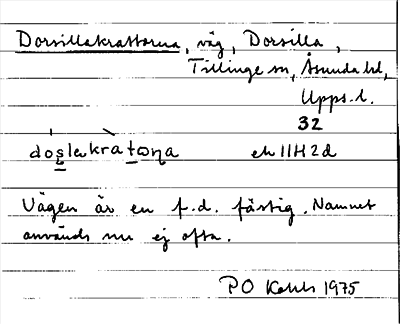 Dorsillakrattorna, väg, Dorsilla,
Tillinge sn, Åsunda hd,
Upps. l.
32
ek 11H2d
Vägen är en f.d. fästig. Namnet
används nu ej ofta.
PO 1975